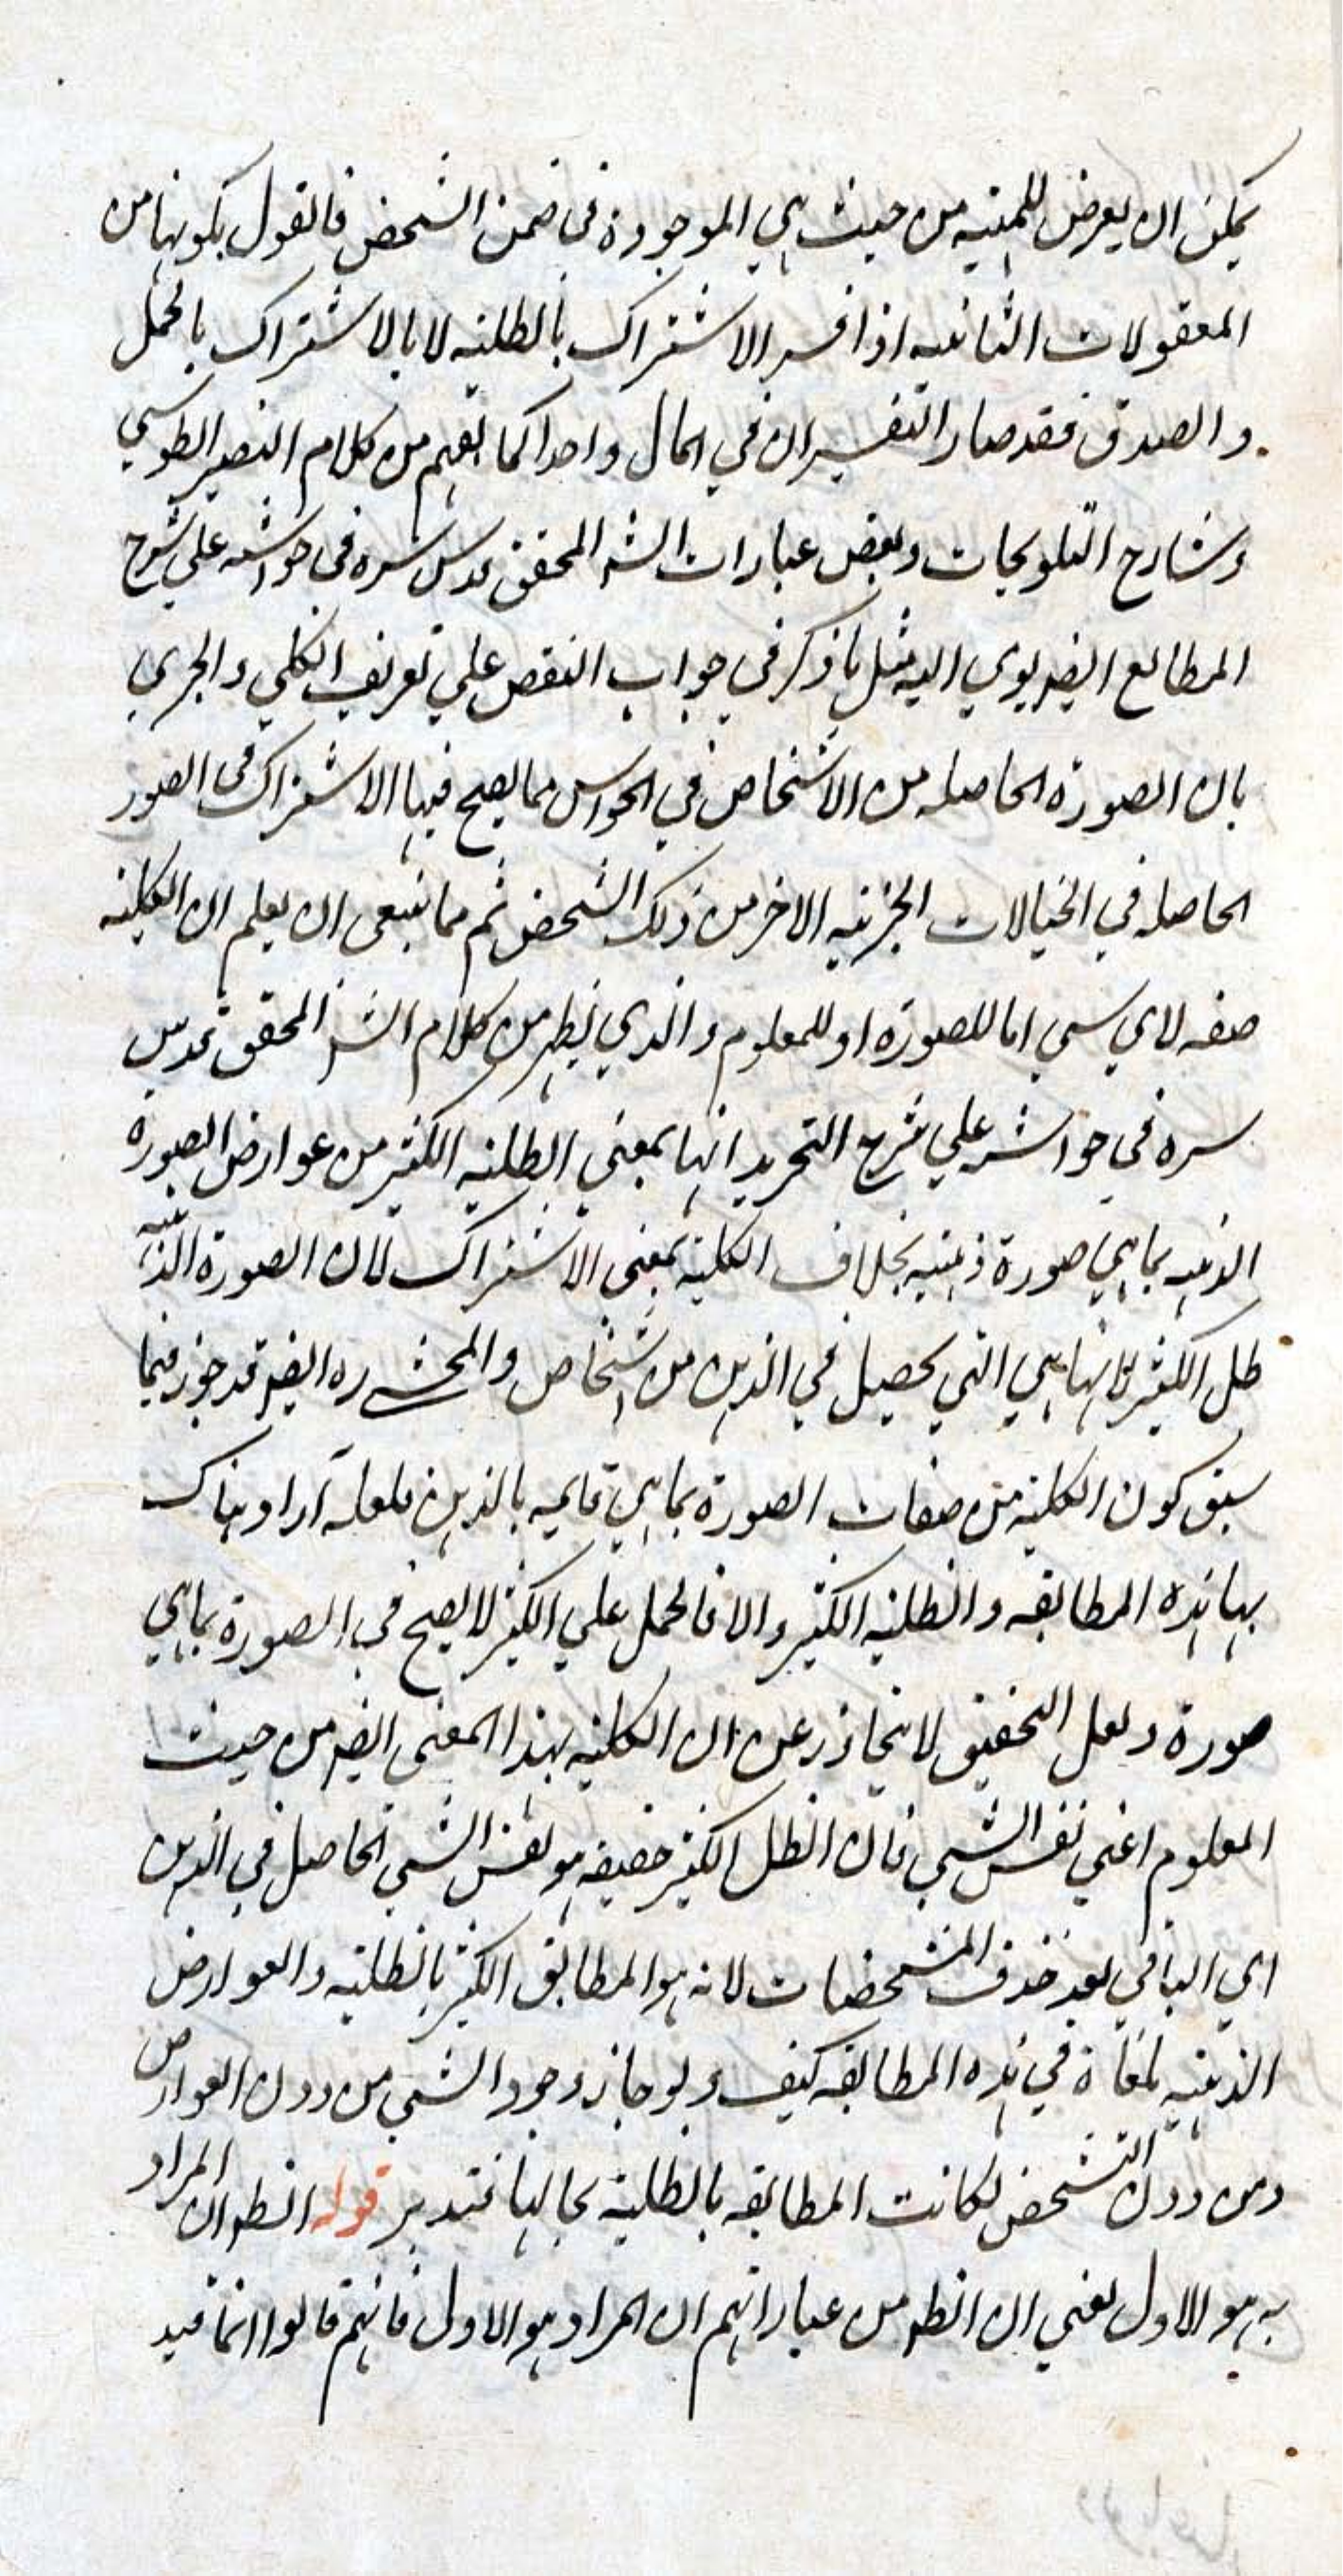 يمكن ان يعرض للمهية من حيث هي الموجودة في ضمن الشخص فالقول بكونها من
المعقولات الثانية اذا فسر الاشتراك بالظلية لا بالاشتراك بالحمل
والصدق فقد صار التفسيران في المآل واحدا كما يفهم من كلام النصير الطوسي
وشارح التلويحات وبعض عبارات الش المحقق قدس سره في حواشيه علي شرح
المطالع ايضا يومي اليه مثل ما ذكر في جواب النقض علي تعريف الكلي والجزئي
بان الصورة الحاصلة من الاشخاص في الحواس مما يصح فيها الاشتراك في الصور
الحاصلة في الخيالات الجزئية الاخر من ذلك الشخص ثم مما ينبغي ان يعلم ان الكلية
صفة لاي شي اما للصورة او للمعلوم والذي يظهر من كلام الش المحقق قدس
سره في حواشيه علي شرح التجريد انها بمعني الظلية للكثير من عوارض الصورة
الذهنية بما هي صورة ذهنية بخلاف الكلية بمعنى الاشتراك لان الصورة الذهنية
ظل للكثير لانها هي التي يحصل في الذهن من اشخاص والمحشي ره ايضا قد جوز فيما
سبق كون الكلية من صفات الصورة بما هي قايمة بالذهن فلعله آراد هناك
بها هذه المطابقة والظلية للكثير والا فالحمل علي الكثير لا يصح في الصورة بما هي
صورة ولعل التحقيق لا يتجاوز عن ان الكلية بهذا المعنى ايضا من حيث
المعلوم اعني نفس الشي فان الظل للكثير حقيقة هو نفس الشي الحاصل في الذهن
اي الباقي بعد حذف المشخصات لانه هو المطابق للكثير بالظلية والعوارض
الذهنية ملغاة في هذه المطابقة كيف ولو جاز وجود الشي من دون العوارض
ومن دون التشخص لكانت المطابقة بالظلية بحالها فتدبر قوله الظ ان المراد
به هو الاول يعني ان الظ من عباراتهم ان المراد هو الاول فانهم قالوا انما قيد